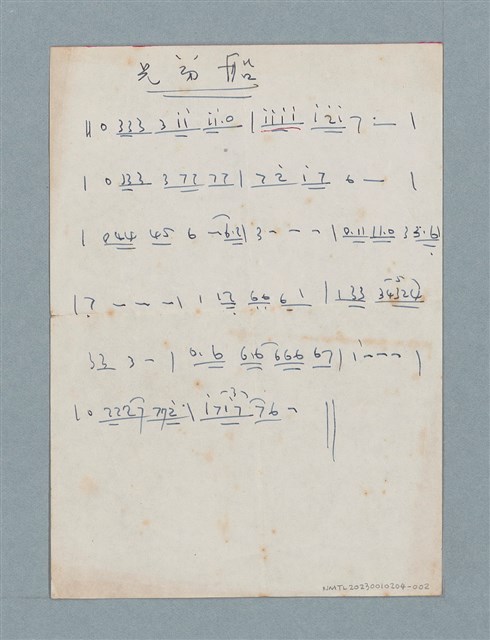 || 0 333 3 i̇i̇ i̇i̇.0 | i̇i̇i̇i̇ i̇2̇i̇ 7 — |
| 0 333 3 77 77 | 7 2̇ i̇ 7 6 — |
| 044 45 6 - 6.2 | 3 - - - | 0.11 11.0 3 3 5.6
| 7 - - - | 1 17 66 6 1 | 133 34324
33 3 - | 0.6 6.6 666 67 | i̇ - - - |
| 0 2227 772̇ | i̇7i̇7 76 - ||
NMTL20230010204-002